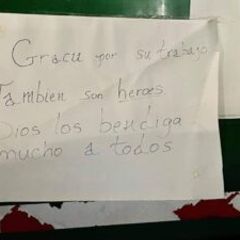 Gracia por su trabajo
Tambien son heroes
Dios los bendiga
mucho a todos